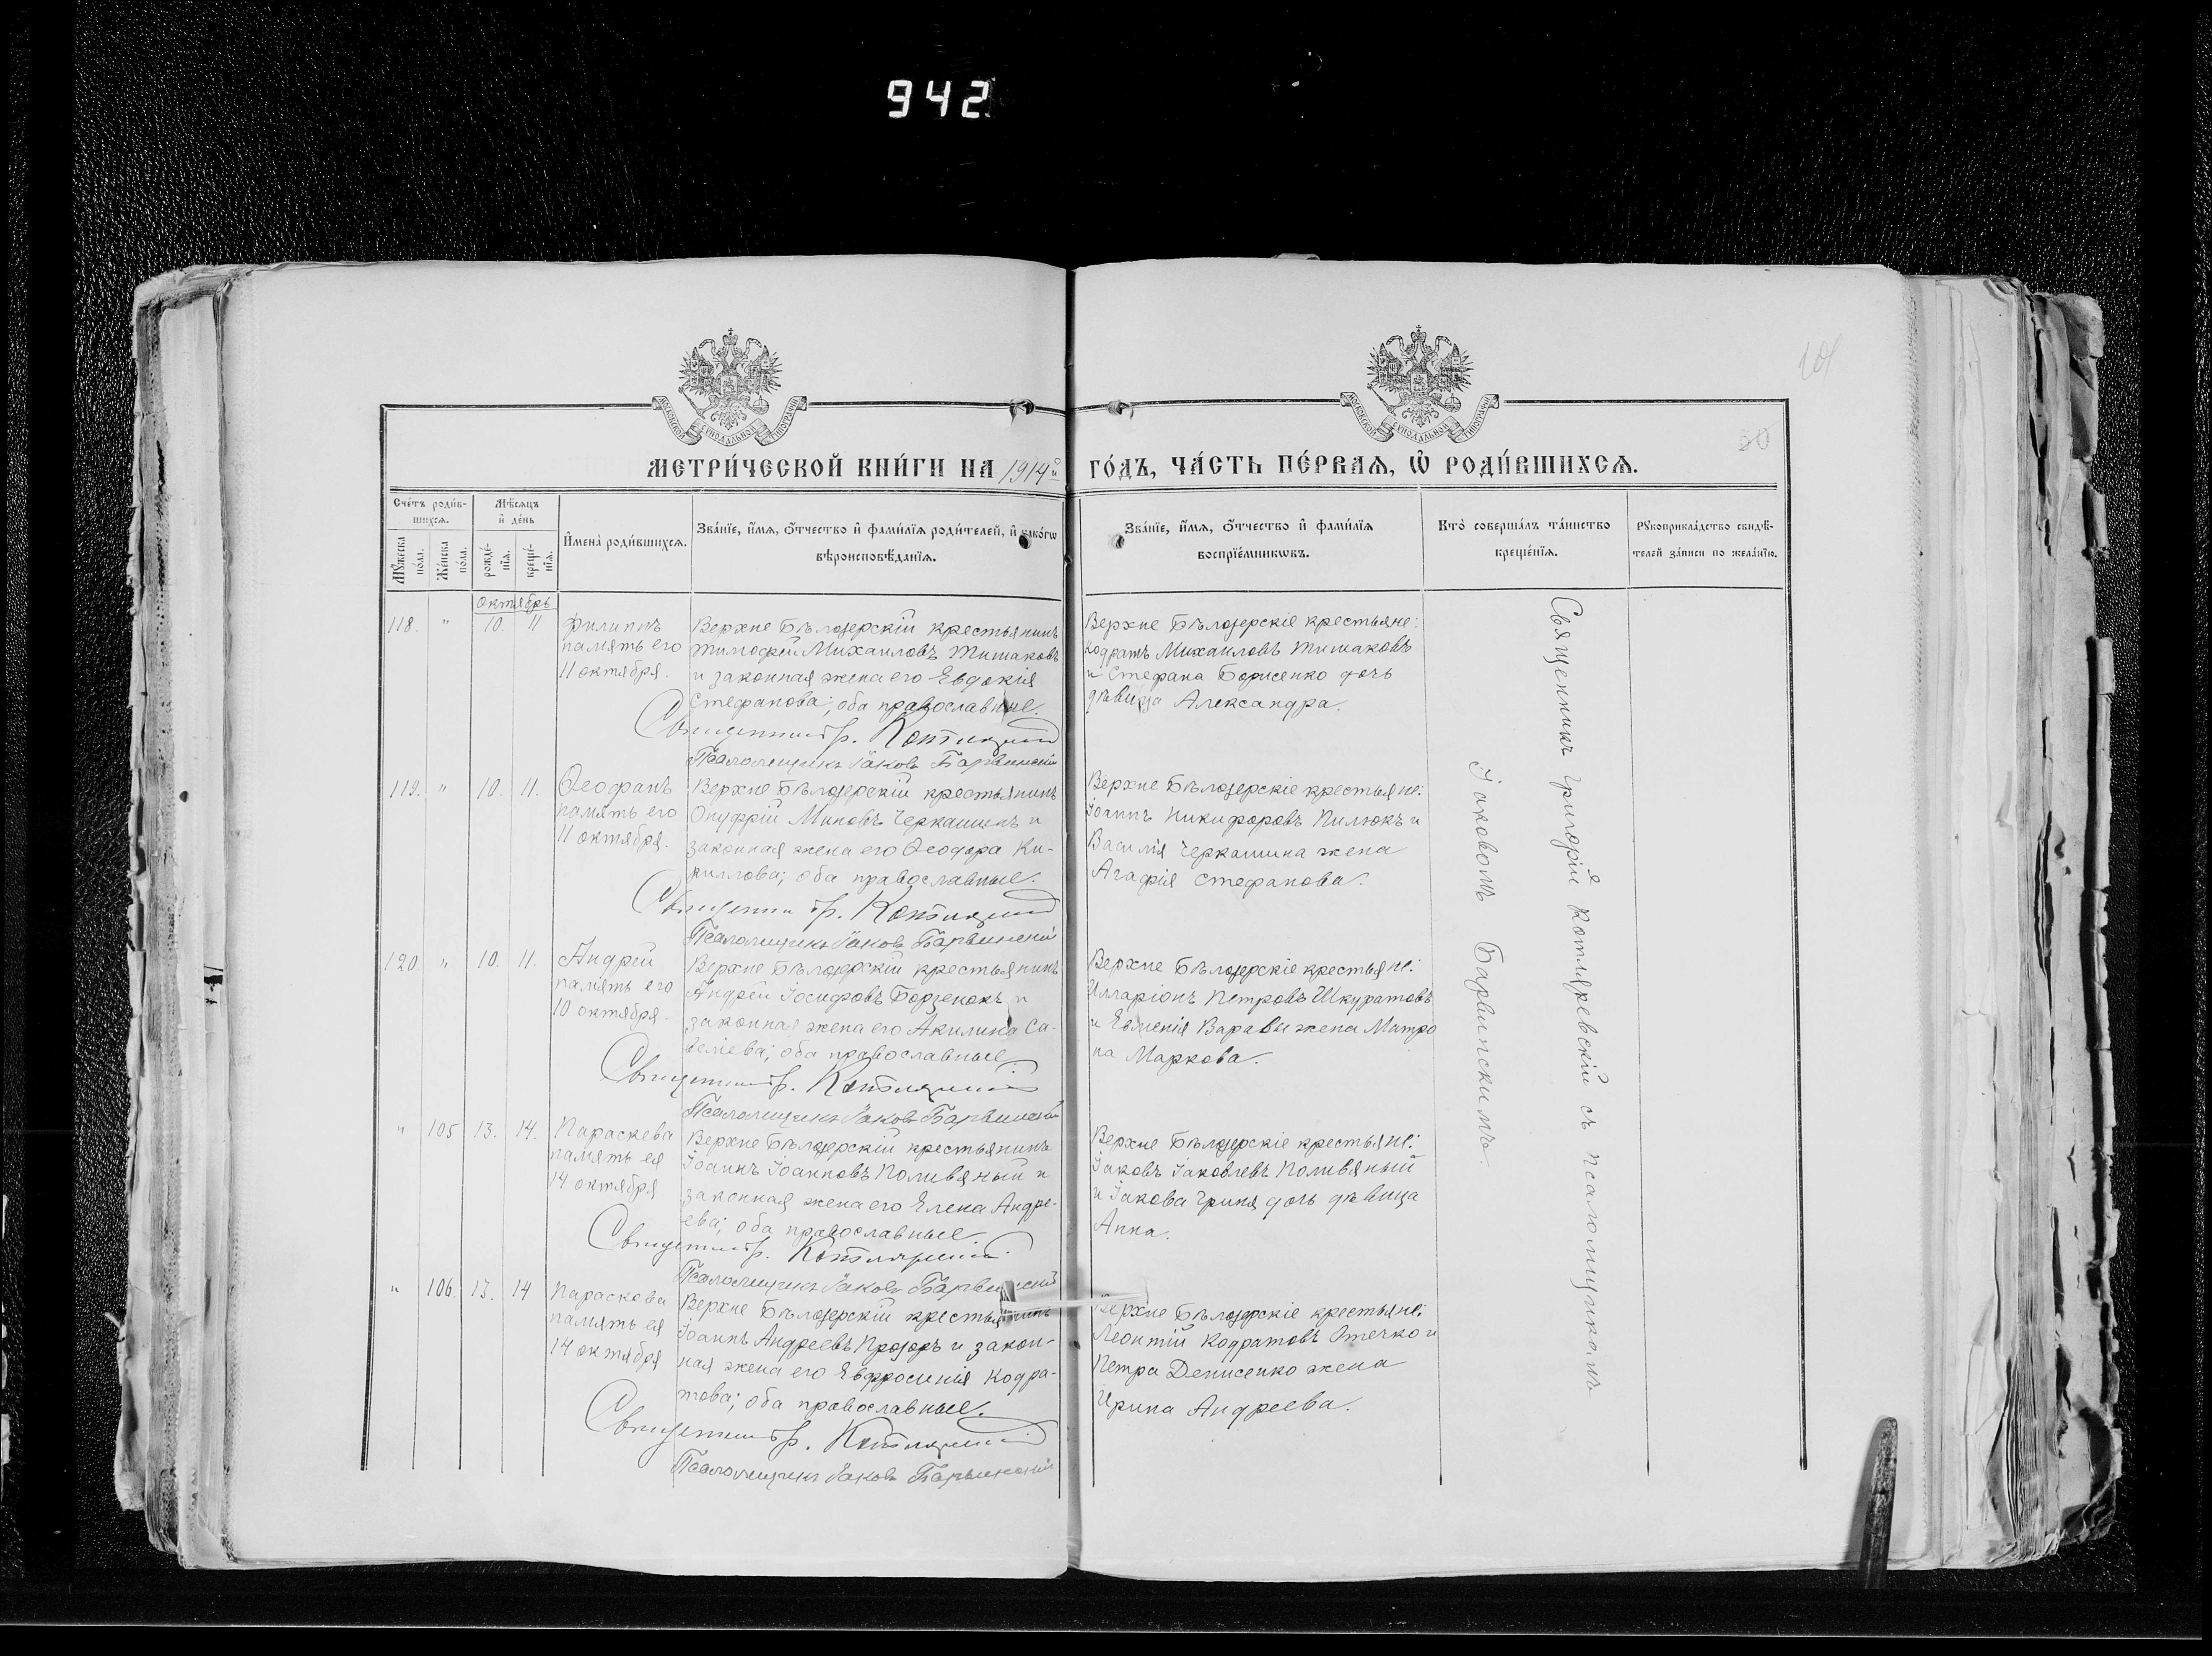 942
101
50
МОСКОВСКОЙ СѴНОДАЛЬНОЙ ТИПОГРАФІИ
МОСКОВСКОЙ СѴНОДАЛЬНОЙ ТИПОГРАФІИ
МЕТРИ́ЧЕСКОЙ КНИ́ГИ НА 1914й ГО́ДЪ, ЧА́СТЬ ПЕ́РВАѦ, Ѡ РОДИ́ВШИХСѦ.
Сче́тъ роди́в-
шихсѧ.
Мѣ́сѧцъ
и де́нь
Мꙋ́жеска
по́ла.
Же́нска
по́ла.
рожде́-
нїѧ.
креще́-
нїѧ.
И҆мена̀ роди́вшихсѧ.
Зва́нїе, и҆́мѧ, ѻ҆́тчество и҆ фами́лїѧ роди́телей, и҆ како́гѡ
вѣроисповѣ́данїѧ.
Зва́нїе, и҆́мѧ, ѻ҆́тчество и҆ фами́лїѧ
воспрїе́мникѡвъ.
Кто̀ соверша́лъ та́инство
креще́нїѧ.
Рꙋкоприкла́дство свидѣ́-
телей за́писи по жела́нїю.
октябрь
118. " 10. 11
Филиппъ
память его
11 октября.
Верхне Бѣлозерскій крестьянинъ
Тимофей Михаиловъ Тимаковъ
и законная жена его Евдокія
Стефанова; оба православные.
Священникъ Гр. Котляревскій
Псаломщикъ Іаковъ Барвинскій
Верхне Бѣлозерскіе крестьяне:
Кодратъ Михаиловъ Тимаковъ
и Стефана Борисенко дочь
дѣвица Александра.
119. " 10. 11.
Ѳеофанъ
память его
11 октября.
Верхне Бѣлозерскій крестьянинъ
Онуфрій Миновъ Черкашинъ и
законная жена его Ѳеодора Ки-
риллова; оба православные.
Священникъ Гр. Котляревскій
Псаломщикъ Іаковъ Барвинскій
Верхне Бѣлозерскіе крестьяне:
Іоаннъ Никифоровъ Пилюкъ и
Василія Черкашина жена
Агафія Стефанова.
120. " 10. 11.
Андрей
память его
10 октября.
Верхне Бѣлозерскій крестьянинъ
Андрей Іосифовъ Борзенокъ и
законная жена его Акилина Са-
веліева; оба православные
Священникъ Гр. Котляревскій
Псаломщикъ Іаковъ Барвинскій
Верхне Бѣлозерскіе крестьяне:
Илларіонъ Петровъ Шкуратовъ
и Евменія Варавы жена Матро
на Маркова.
" 105 13. 14.
Параскева
память ея
14 октября
Верхне Бѣлозерскій крестьянинъ
Іоаннъ Іоанновъ Поливяный и
законная жена его Елена Андре-
ева; оба православные
Священникъ Гр. Котляревскій.
Псаломщикъ Іаковъ Барвинскій
Верхне Бѣлозерскіе крестьяне:
Іаковъ Іаковлевъ Поливяный
и Іакова Гриня дочь дѣвица
Анна.
" 106. 13. 14
Параскева
память ея
14 октября
Верхне Бѣлозерскій крестьянинъ
Іоаннъ Андреевъ Прозоръ и закон-
ная жена его Евфросинія Кодра-
това; оба православные.
Священникъ Гр. Котляревскій
Псаломщикъ Іаковъ Барвинскій
Верхне Бѣлозерскіе крестьяне:
Леонтій Кодратовъ Отечко и
Петра Денисенко жена
Ирина Андреева.
Священникъ Григорій Котляревскій съ псаломщикомъ
Іаковомъ Барвинскимъ.